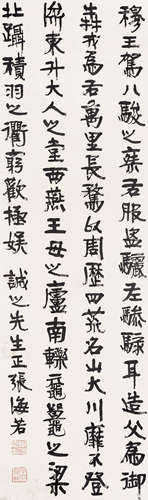 穆王駕八駿之乘右服盜驪左驂騄耳造父爲御
犇戎爲右萬里長騖以周歷四荒名山大川靡不登
濟東升大人之堂西燕王母之廬南轢黿鼉之梁
北躡積羽之衢窮歡極娛 誠之先生正張海若